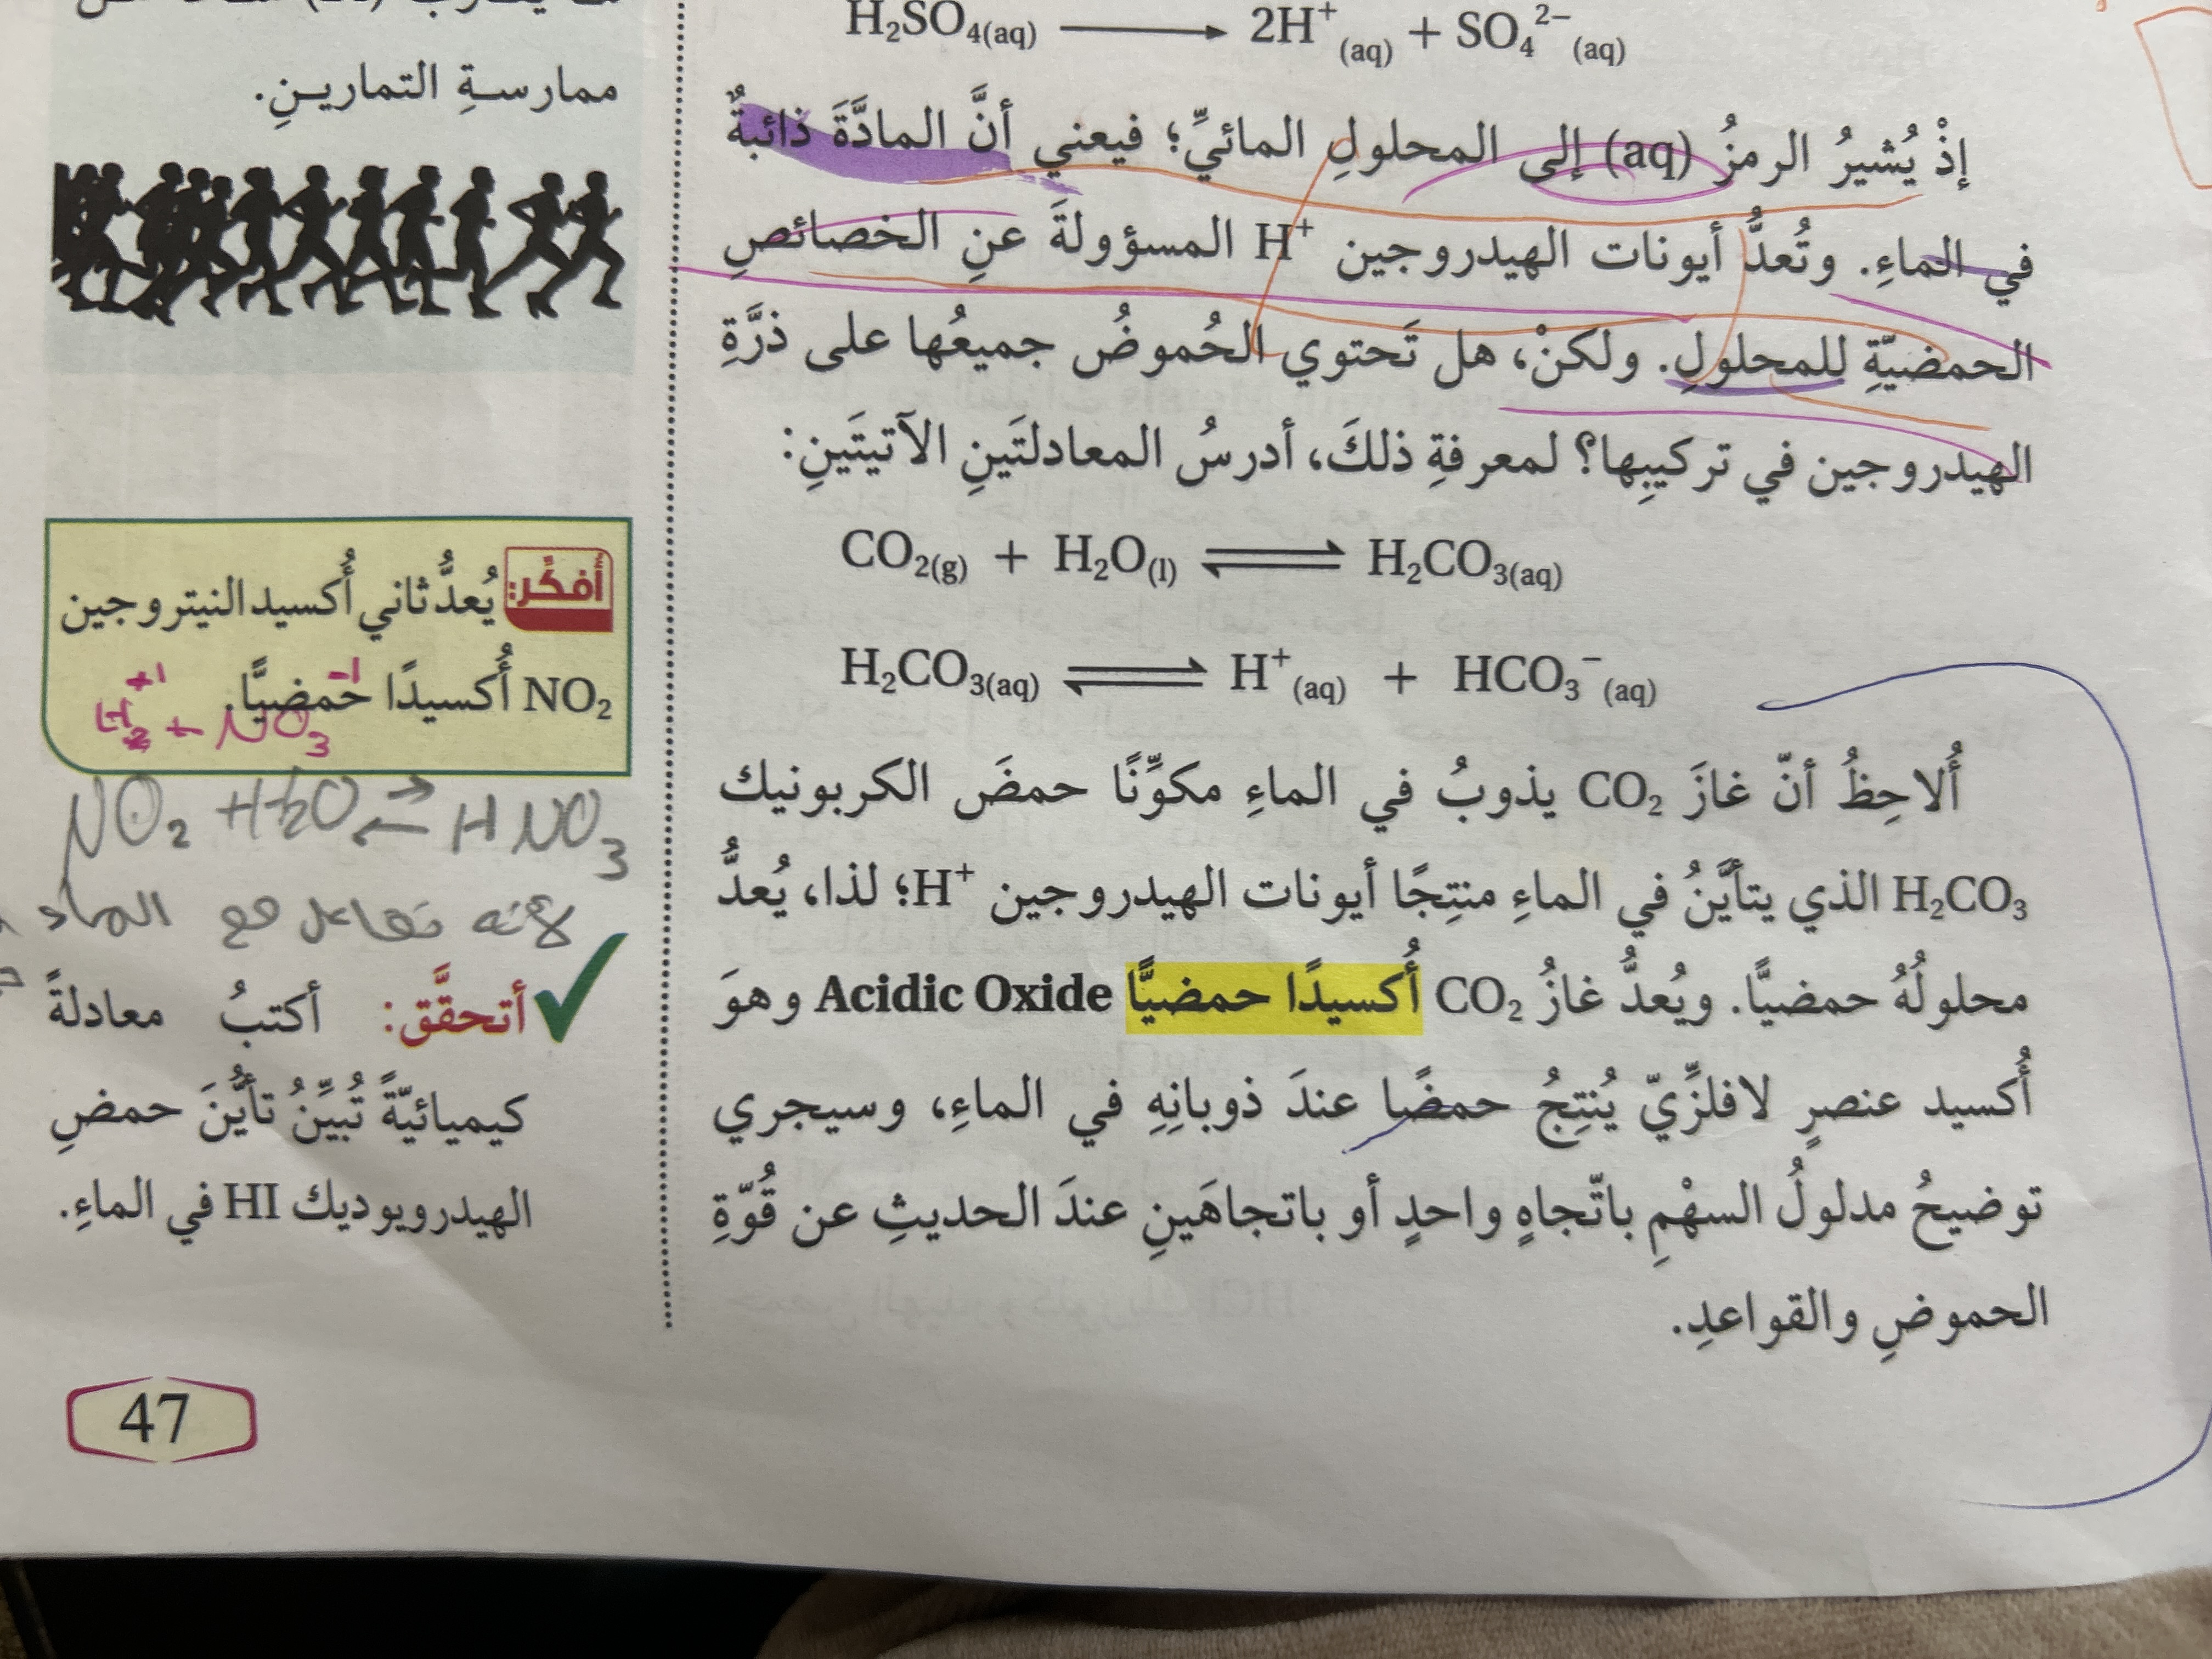 H₂SO₄(aq) ⟶ 2H⁺(aq) + SO₄²⁻(aq)
إذْ يُشيرُ الرمزُ (aq) إلى المحلولِ المائيِّ؛ فيعني أنَّ المادَّةَ ذائبةٌ
في الماءِ. وتُعدُّ أيونات الهيدروجين H⁺ المسؤولةَ عنِ الخصائصِ
الحمضيّةِ للمحلولِ. ولكنْ، هل تَحتوي الحُموضُ جميعُها على ذرَّةِ
الهيدروجين في تركيبِها؟ لمعرفةِ ذلكَ، أدرسُ المعادلتَينِ الآتيتَينِ:
CO₂(g) + H₂O(l) ⇌ H₂CO₃(aq)
H₂CO₃(aq) ⇌ H⁺(aq) + HCO₃⁻(aq)
أُلاحِظُ أنّ غازَ CO₂ يذوبُ في الماءِ مكوِّنًا حمضَ الكربونيك
H₂CO₃ الذي يتأيَّنُ في الماءِ منتِجًا أيونات الهيدروجين H⁺؛ لذا، يُعدُّ
محلولُهُ حمضيًّا. ويُعدُّ غازُ CO₂ أُكسيدًا حمضيًّا Acidic Oxide وهوَ
أُكسيد عنصرٍ لافلزِّيّ يُنتِجُ حمضًا عندَ ذوبانِهِ في الماءِ، وسيجري
توضيحُ مدلولُ السهْمِ باتّجاهٍ واحدٍ أو باتجاهَينِ عندَ الحديثِ عن قُوّةِ
الحموضِ والقواعدِ.
ممارسـةِ التمارينِ.
أفكِّر: يُعدُّ ثاني أُكسيد النيتروجين
NO₂ أُكسيدًا حمضيًّا.
H₂⁺¹ + NO₃⁻¹
NO₂ + H₂O ⇌ HNO₃
لأنه تفاعل مع الماء
أتحقَّق: أكتبُ معادلةً
كيميائيّةً تُبيِّنُ تأيُّنَ حمضِ
الهيدرويوديك HI في الماءِ.
47